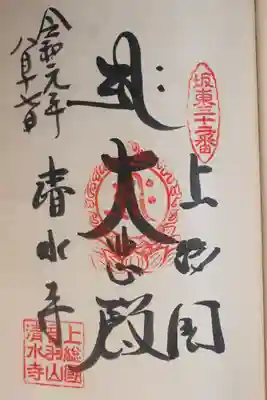 坂東三十二番
上総国
大悲殿
令和元年
八月十七日
清水寺
上総國
音羽山
清水寺